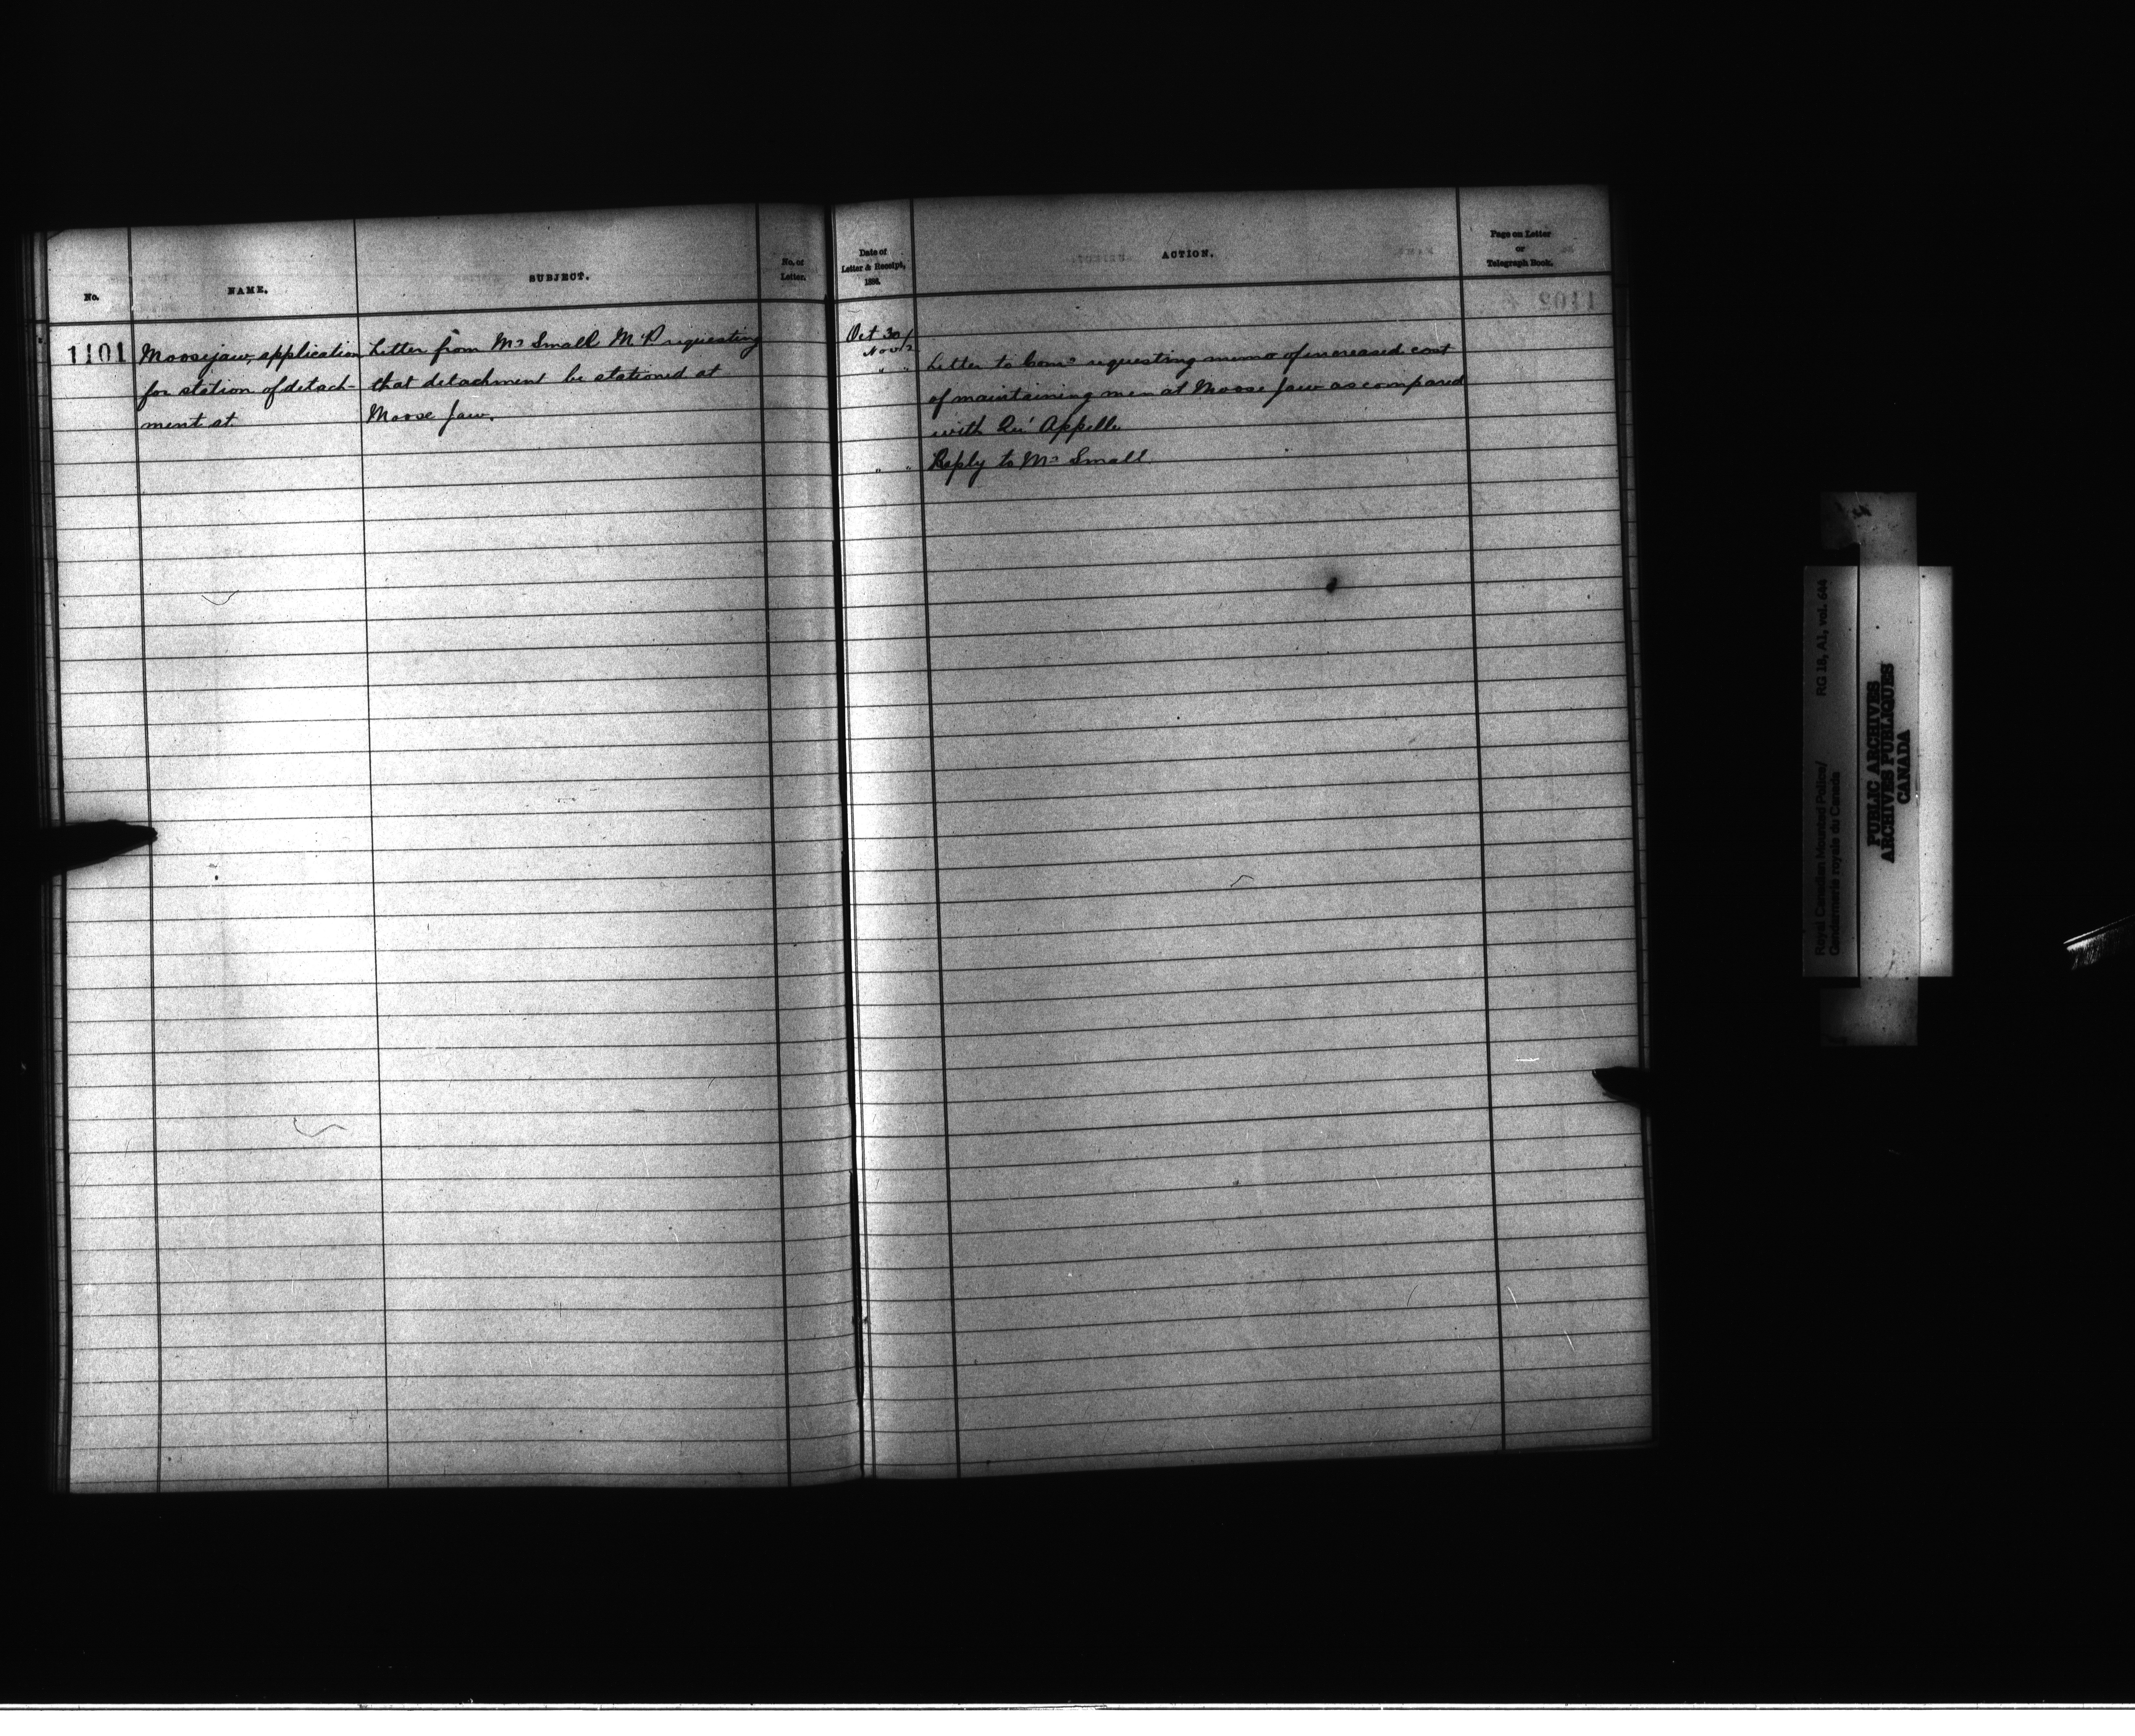 No.
NAME.
SUBJECT.
No. of
Letter.
Date of
Letter & Receipt,
188
ACTION.
Page on Letter
or
Telegraph Book.
1101
Moosejaw, application
for station of detach-
ment at
Letter from Mr Small M.P. requesting
that detachment be stationed at
Moose Jaw.
Oct 30/
Nov 2
" "
Letter to Comr requesting memo of increased cost
of maintaining men at Moose Jaw as compared
with Qu'Appelle
" "
Reply to Mr Small
1102
Royal Canadian Mounted Police/
Gendarmerie royale du Canada
RG 18, A1, vol. 644
PUBLIC ARCHIVES
ARCHIVES PUBLIQUES
CANADA